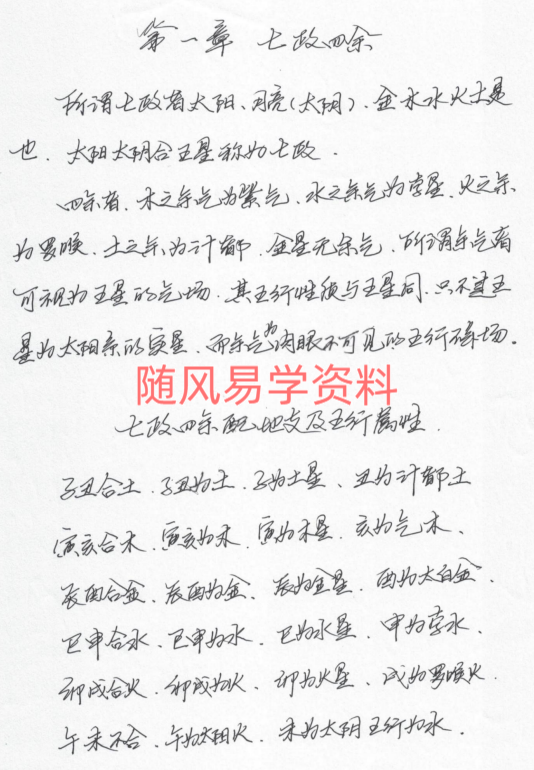 第一章 七政四余
所谓七政者太阳、月亮(太阴)、金木水火土是
也. 太阳太阴合五星称为七政.
四余者. 木之余气为紫气. 水之余气为孛星. 火之余
为罗睺. 土之余为计都. 金星无余气. 所谓余气者
可视为五星的气场. 其五行性质与五星同. 只不过五
星为太阳系的实星. 而余气为肉眼不可见的五行磁场.
随风易学资料
七政四余配地支及五行属性.
子丑合土. 子丑为土. 子为土星、丑为计都土
寅亥合木. 寅亥为木. 寅为木星. 亥为气木.
辰酉合金. 辰酉为金. 辰为金星. 酉为太白金.
巳申合水. 巳申为水. 巳为水星. 申为孛水.
卯戌合火. 卯戌为火. 卯为火星. 戌为罗睺火.
午未不合. 午为太阳火. 未为太阴五行为水.